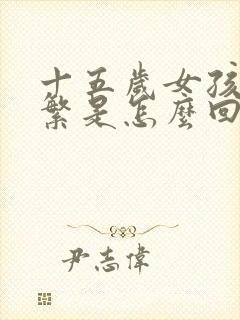 十五歲女孩
繁是怎麼回
尹志偉